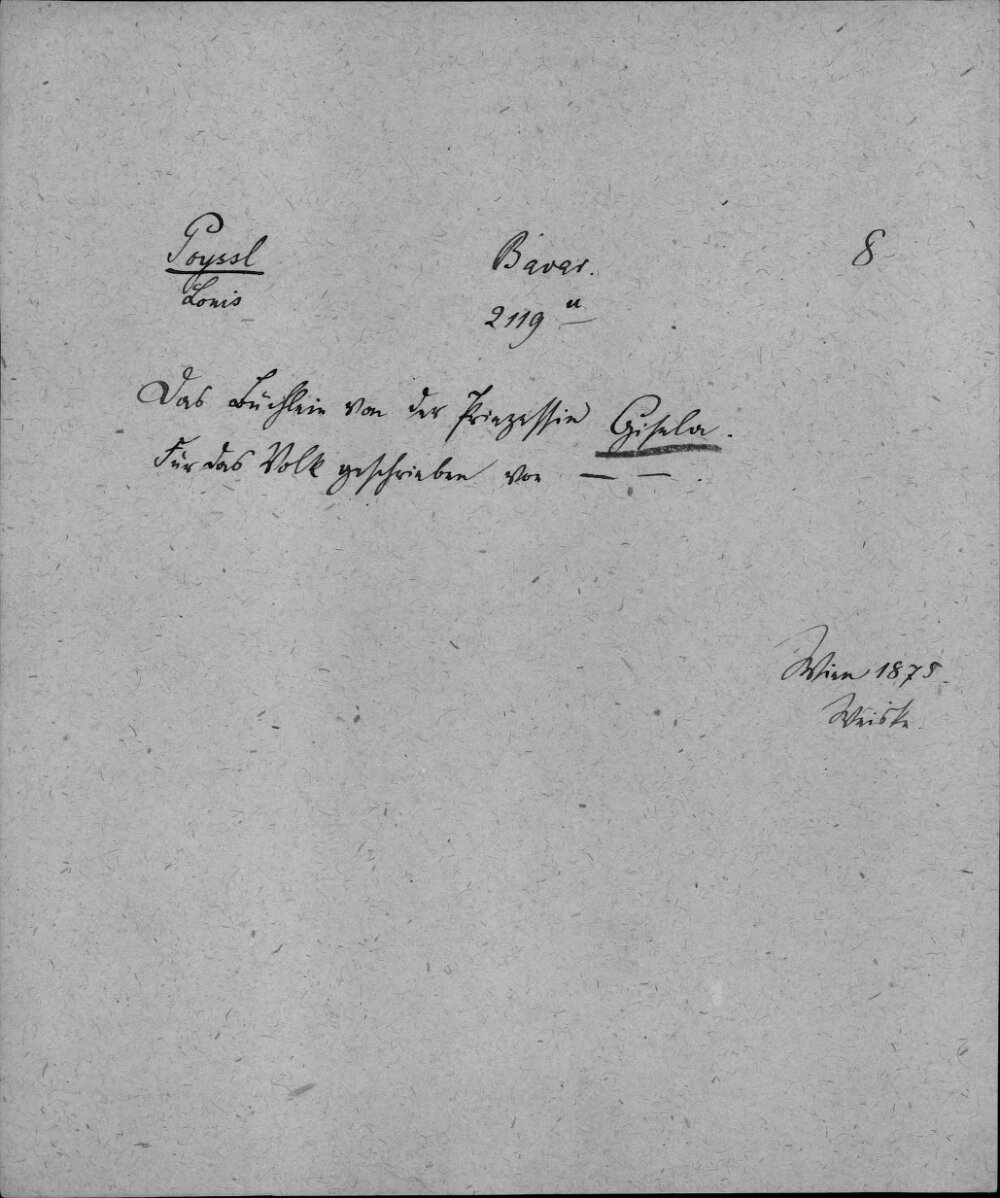 Poyssl
Louis
Bavar.
2119 u
8
Das Büchlein von der Prinzessin Gisela.
Für das Volk geschrieben von — — .
Wien 1875.
Weiske.